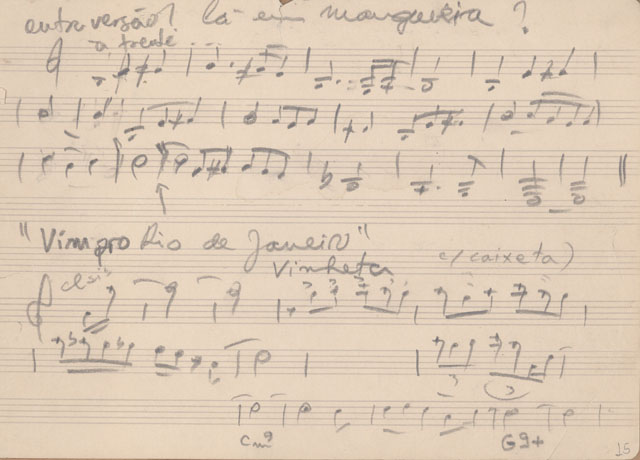 outra versão? lá em mangueira ?
a frente ...
"Vim pro Rio de Janeiro"
Vinheta
c/ caixeta)
Cm9
G9+
15